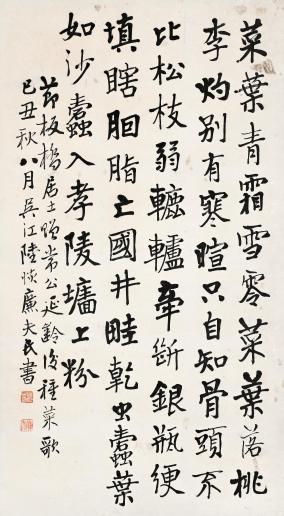 菜葉青霜雪零菜葉落桃
李灼别有寒暄只自知骨頭不
比松枝弱轆轤牽斷銀瓶綆
填瞎胭脂亡國井畦乾虫蠹葉
如沙蠹入孝陵壖上粉
節板橋居士贈常公延齡後種菜歌
己丑秋八月吳江陸恢廉夫氏書